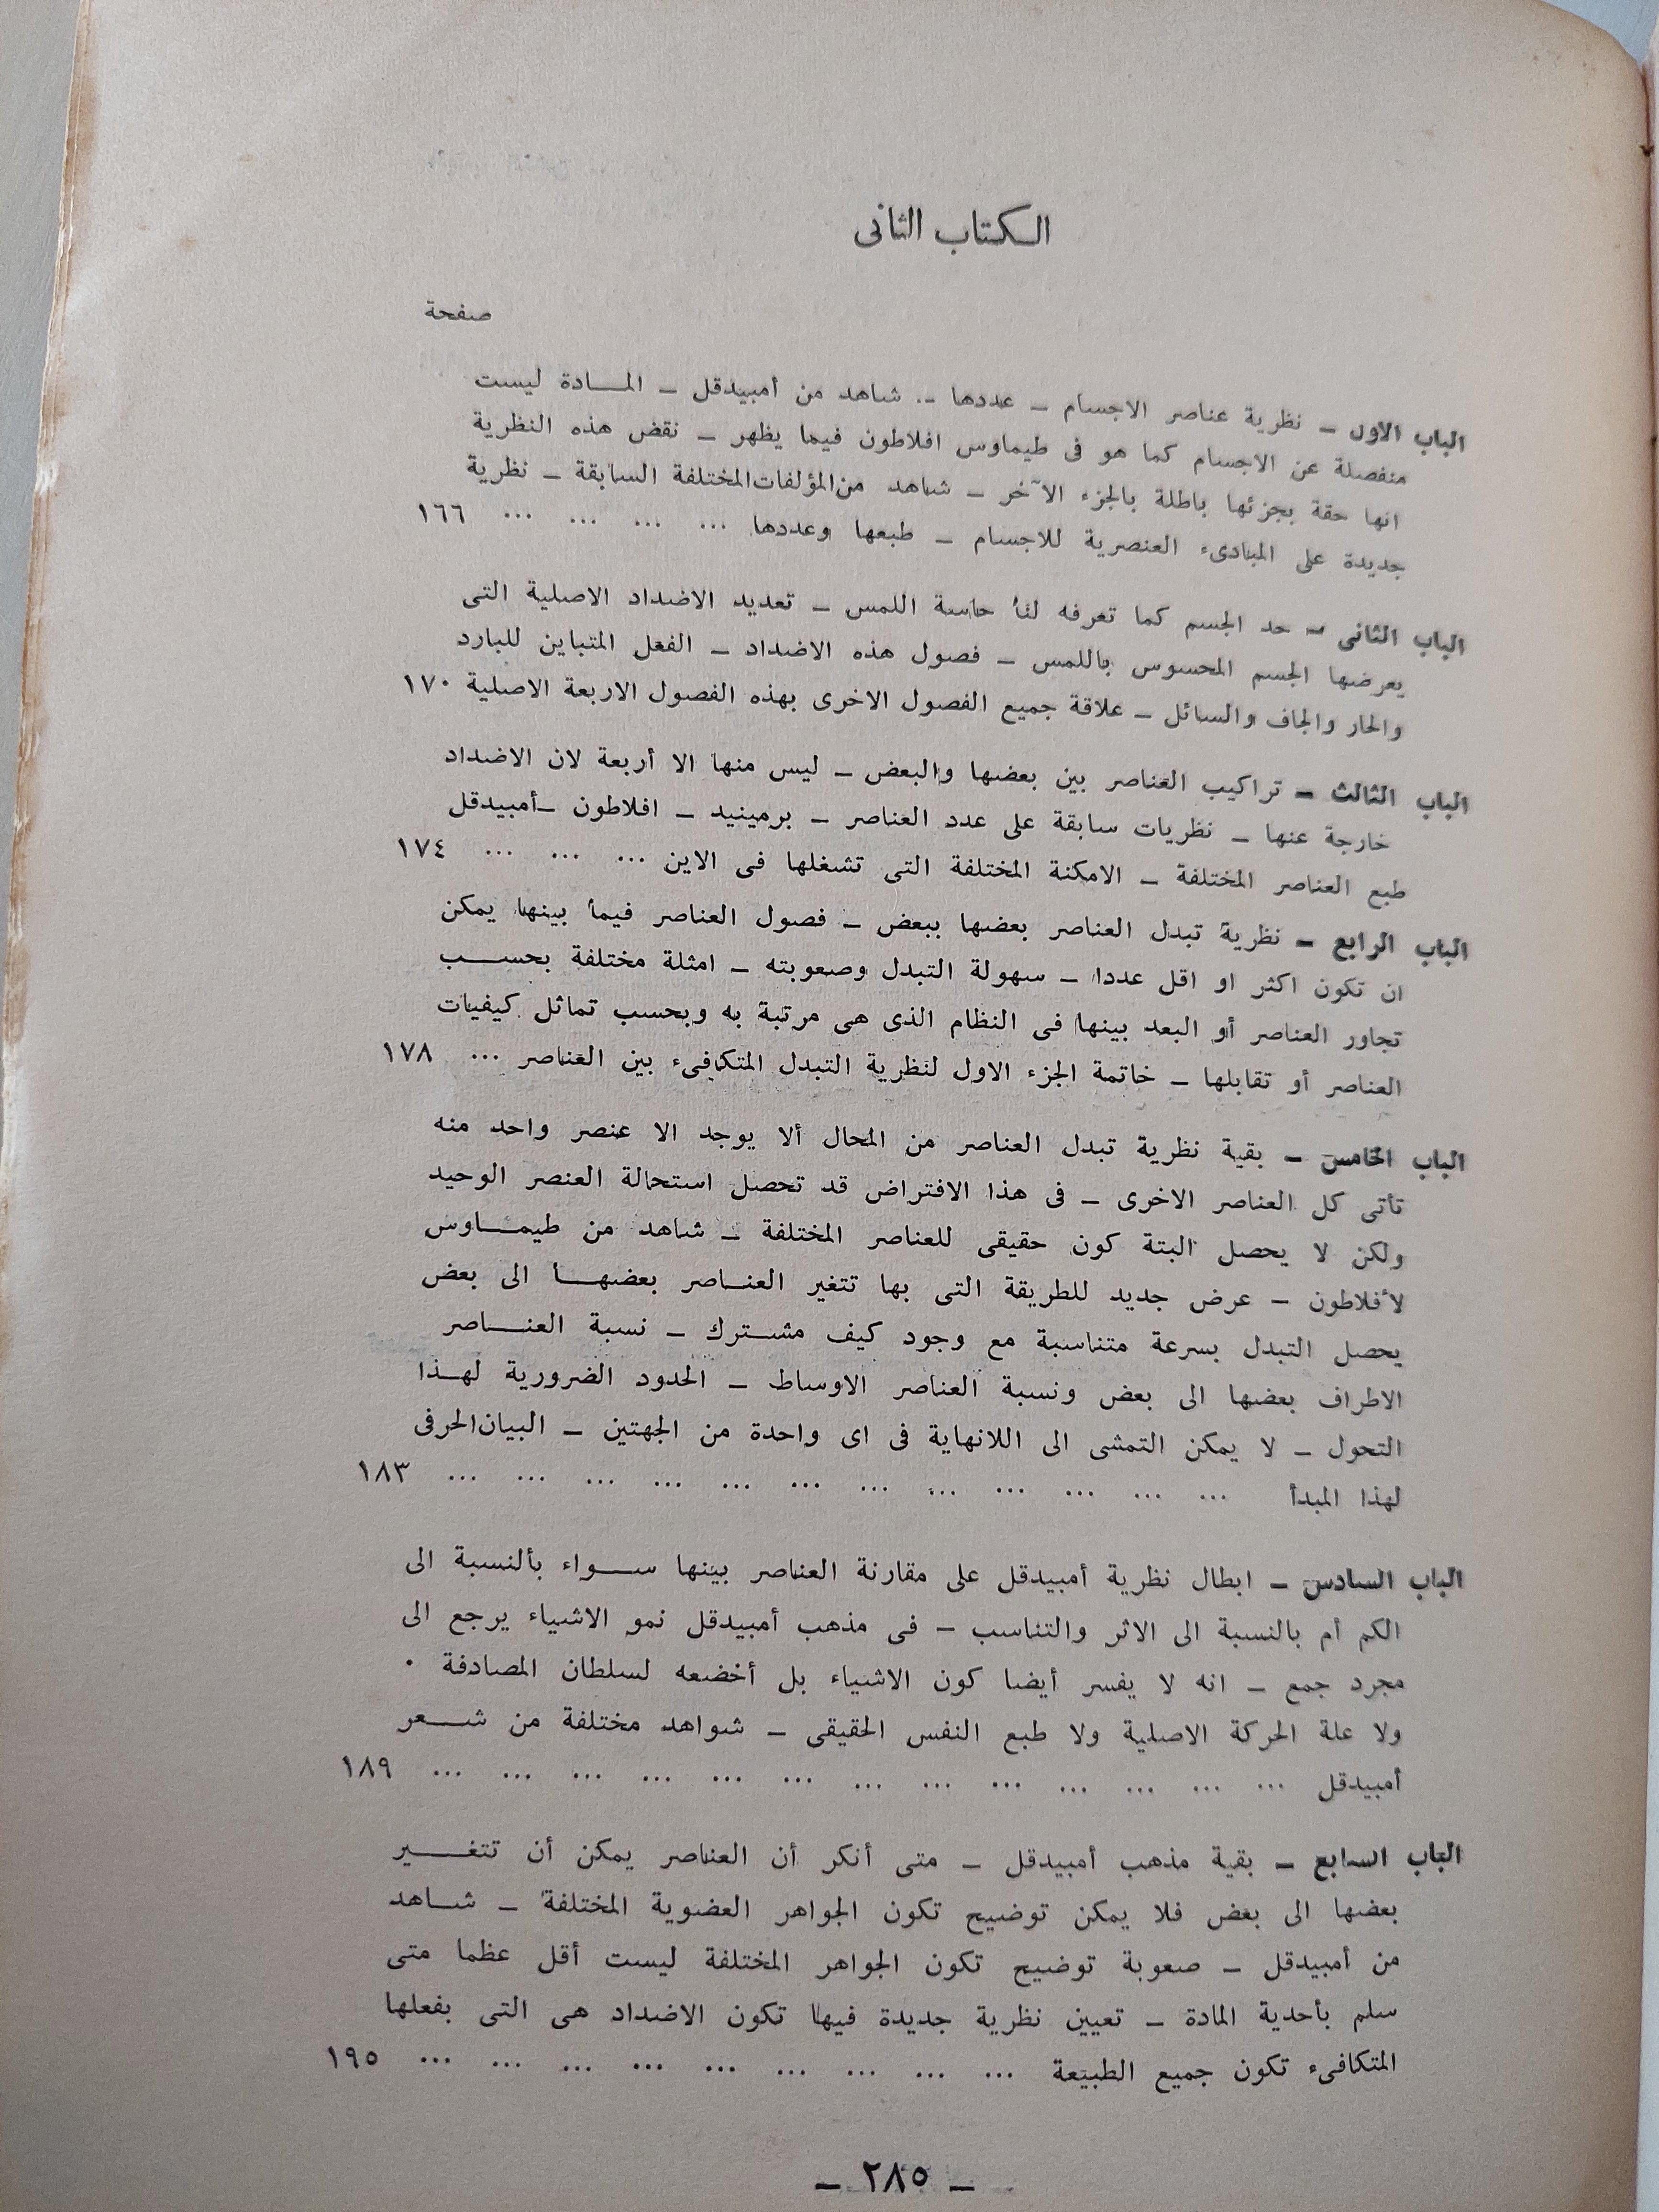 الكتاب الثانى
صفحة
الباب الاول – نظرية عناصر الاجسام – عددها – شاهد من أمبيدقل – المادة ليست
منفصلة عن الاجسام كما هو فى طيماوس افلاطون فيما يظهر – نقض هذه النظرية
انها حقة بجزئها باطلة بالجزء الآخر – شاهد من المؤلفات المختلفة السابقة – نظرية
جديدة على المبادىء العنصرية للاجسام – طبعها وعددها ... ... ... ... ١٦٦
الباب الثانى – حد الجسم كما تعرفه لنا حاسة اللمس – تعديد الاضداد الاصلية التى
يعرضها الجسم المحسوس باللمس – فصول هذه الاضداد – الفعل المتباين للبارد
والحار والجاف والسائل – علاقة جميع الفصول الاخرى بهذه الفصول الاربعة الاصلية ١٧٠
الباب الثالث – تراكيب العناصر بين بعضها والبعض – ليس منها الا أربعة لان الاضداد
خارجة عنها – نظريات سابقة على عدد العناصر – برمينيد – افلاطون – أمبيدقل
طبع العناصر المختلفة – الامكنة المختلفة التى تشغلها فى الاين ... ... ... ... ١٧٤
الباب الرابع – نظرية تبدل العناصر بعضها ببعض – فصول العناصر فيما بينها يمكن
ان تكون اكثر او اقل عددا – سهولة التبدل وصعوبته – امثلة مختلفة بحسب
تجاور العناصر أو البعد بينها فى النظام الذى هى مرتبة به وبحسب تماثل كيفيات
العناصر أو تقابلها – خاتمة الجزء الاول لنظرية التبدل المتكافىء بين العناصر ... ١٧٨
الباب الخامس – بقية نظرية تبدل العناصر من المحال ألا يوجد الا عنصر واحد منه
تأتى كل العناصر الاخرى – فى هذا الافتراض قد تحصل استحالة العنصر الوحيد
ولكن لا يحصل البتة كون حقيقى للعناصر المختلفة – شاهد من طيماوس
لأفلاطون – عرض جديد للطريقة التى بها تتغير العناصر بعضها الى بعض
يحصل التبدل بسرعة متناسبة مع وجود كيف مشترك – نسبة العناصر
الاطراف بعضها الى بعض ونسبة العناصر الاوساط – الحدود الضرورية لهذا
التحول – لا يمكن التمشى الى اللانهاية فى اى واحدة من الجهتين – البيان الحرفى
لهذا المبدأ ... ... ... ... ... ... ... ... ... ... ... ... ١٨٣
الباب السادس – ابطال نظرية أمبيدقل على مقارنة العناصر بينها سواء بألنسبة الى
الكم أم بالنسبة الى الاثر والتناسب – فى مذهب أمبيدقل نمو الاشياء يرجع الى
مجرد جمع – انه لا يفسر أيضا كون الاشياء بل أخضعه لسلطان المصادفة ٠
ولا علة الحركة الاصلية ولا طبع النفس الحقيقى – شواهد مختلفة من شعر
أمبيدقل ... ... ... ... ... ... ... ... ... ... ... ... ... ١٨٩
الباب السابع – بقية مذهب أمبيدقل – متى أنكر أن العناصر يمكن أن تتغير
بعضها الى بعض فلا يمكن توضيح تكون الجواهر العضوية المختلفة – شاهد
من أمبيدقل – صعوبة توضيح تكون الجواهر المختلفة ليست أقل عظما متى
سلم بأحدية المادة – تعيين نظرية جديدة فيها تكون الاضداد هى التى بفعلها
المتكافىء تكون جميع الطبيعة ... ... ... ... ... ... ... ... ... ١٩٥
– ٢٨٥ –